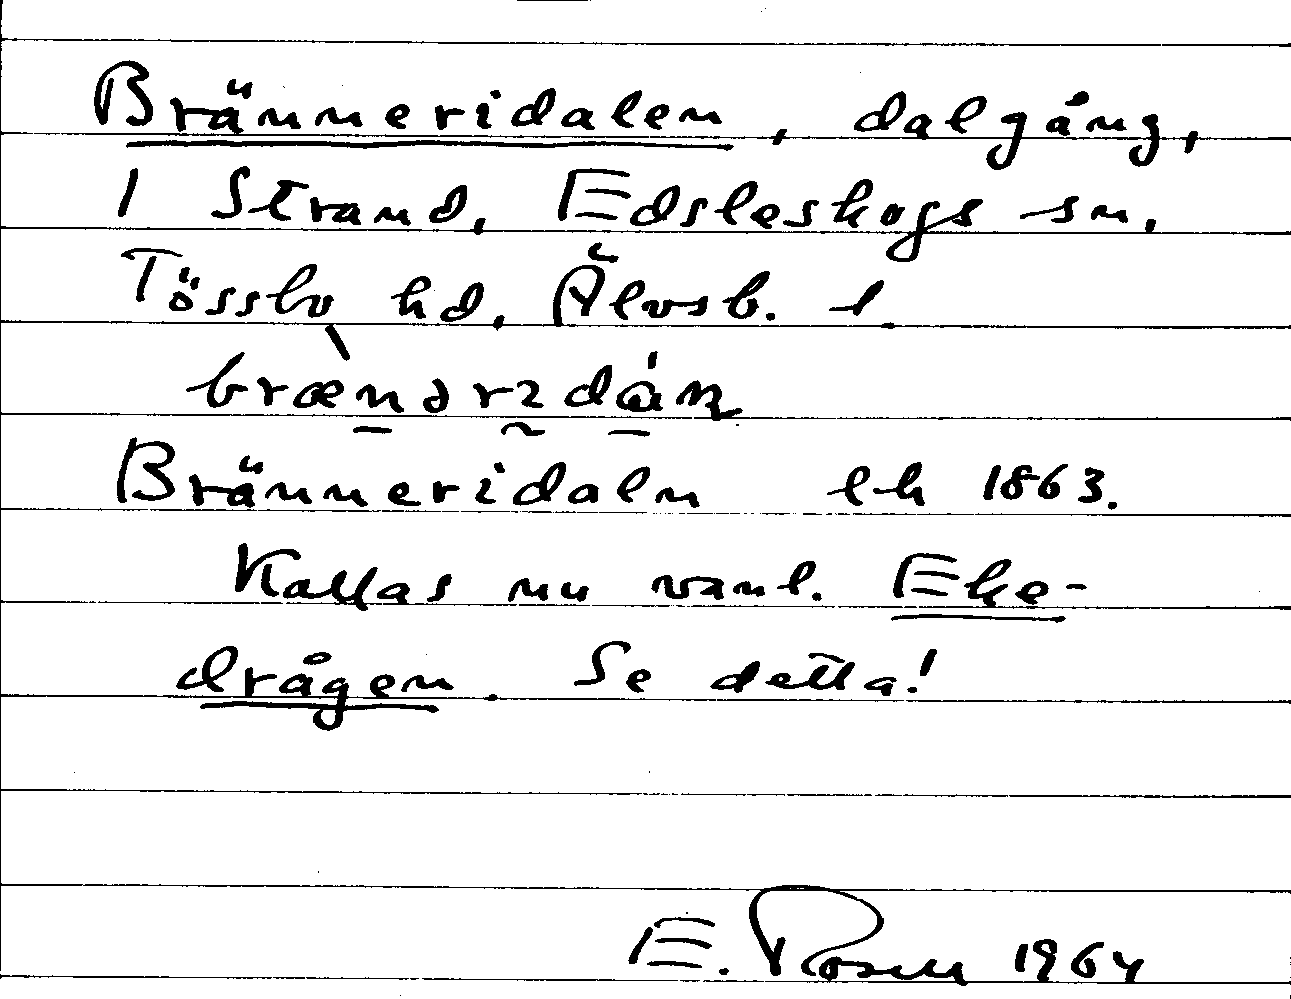 Bränneridalen, dalgång,
1 Strand, Edsleskogs sn.
Tössbo hd, Älvsb. l
brænərɩdán
Bränneridaln lh 1863.
Kallas nu vanl. Eke-
drågen. Se detta!
E. Rosell 1964